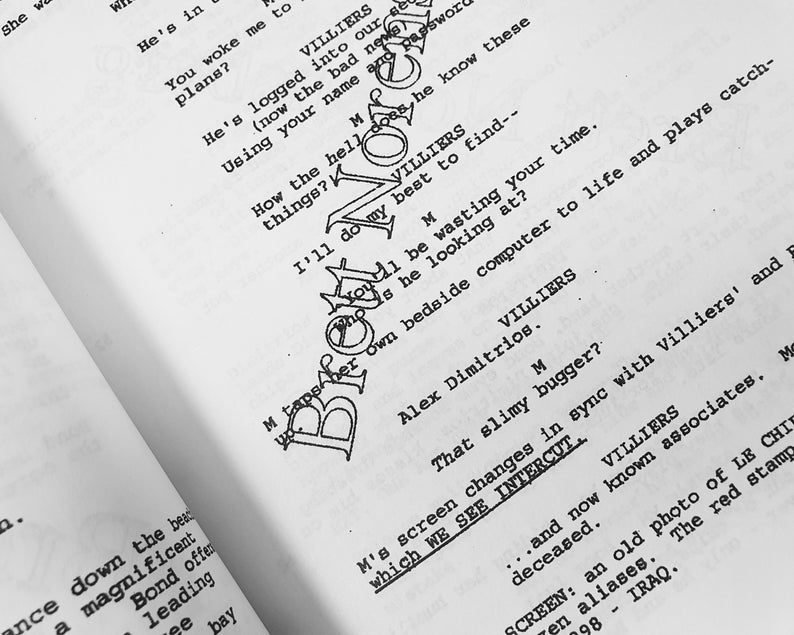 he wa
He's in
You woke me to
plans?
VILLIERS
He's logged into our se
(now the bad news)
Using your name and password
M
How the hell does he know these
things?
VILLIERS
I'll do my best to find--
M
You'll be wasting your time.
Who is he looking at?
M taps her own bedside computer to life and plays catch-
up.
VILLIERS
Alex Dimitrios.
M
That slimy bugger?
M's screen changes in sync with Villiers' and
which WE SEE INTERCUT.
VILLIERS
...and now known associates. M
deceased.
SCREEN: an old photo of LE CHI
en aliases. The red stamp
98 - IRAQ.
Brett Noren
n.
ance down the beac
a magnificent
Bond offen
leading
ee
bay